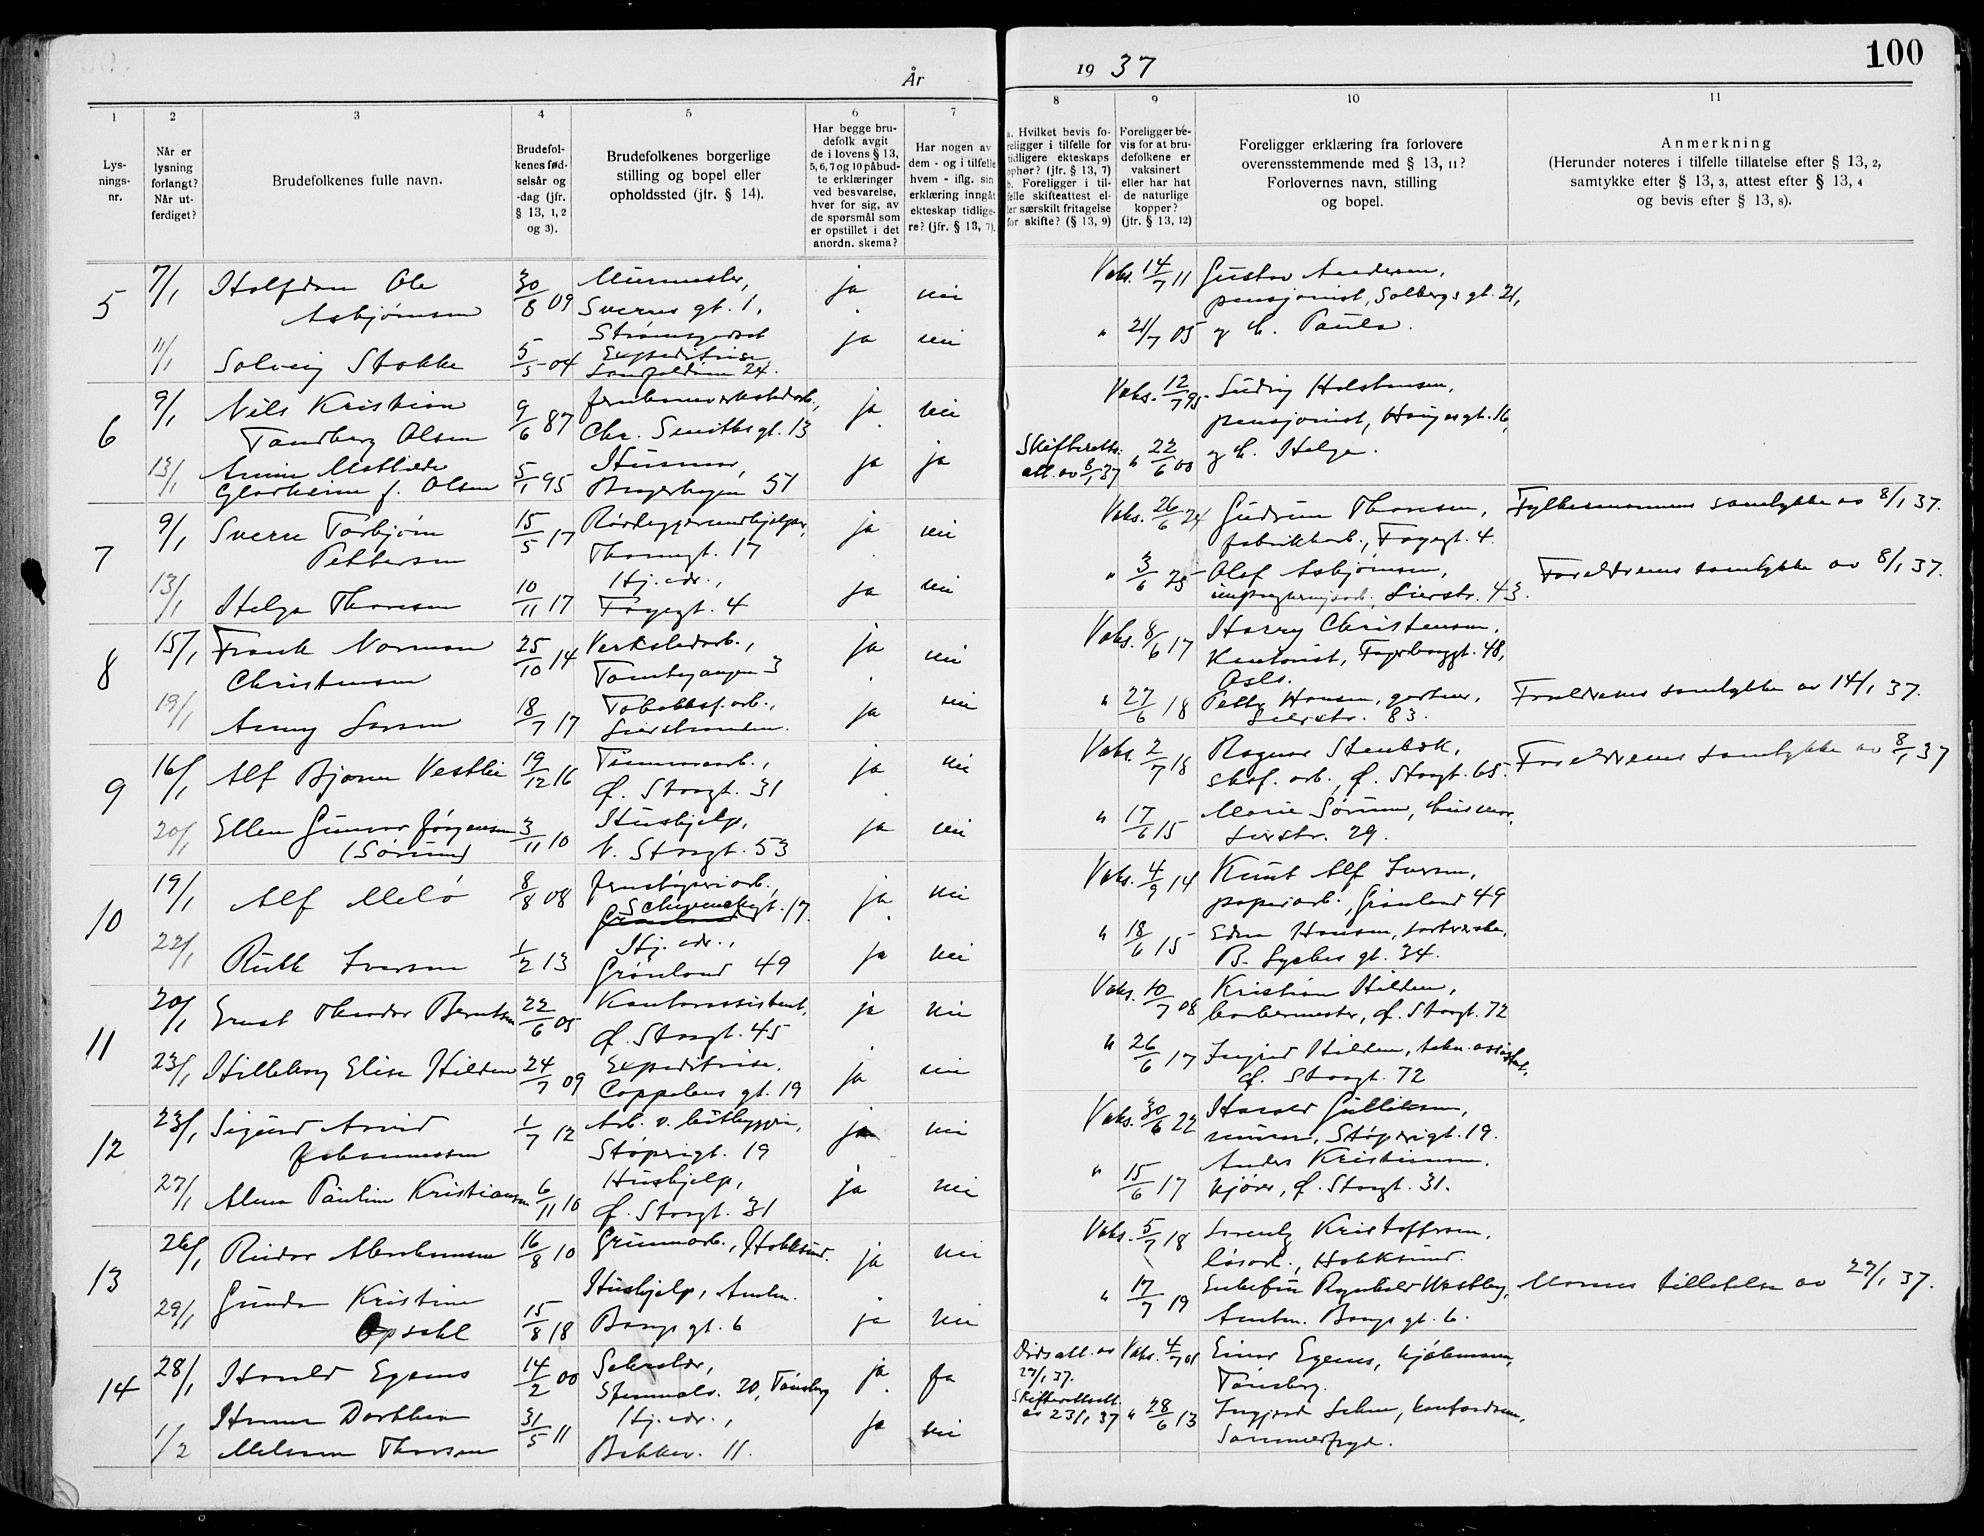 År
19 37
100
1
2
3
4
5
6
7
8
9
10
11
Lys-
nings-
nr.
Når er
lysning
forlangt?
Når ut-
ferdiget?
Brudefolkenes fulle navn.
Brudefol-
kenes fød-
selsår og
-dag (jfr.
§ 13, 1, 2
og 3).
Brudefolkenes borgerlige
stilling og bopel eller
opholdssted (jfr. § 14).
Har begge bru-
defolk avgit
de i lovens § 13,
5, 6, 7 og 10 påbud-
te erklæringer
ved besvarelse,
hver for sig, av
de spørsmål som
er opstillet i det
anordn. skema?
Har nogen av
dem - og i tilfelle
hvem - iflg. sin
erklæring inngåt
ekteskap tidlige-
re? (jfr. § 13, 7).
a. Hvilket bevis fo-
religger i tilfelle for
tidligere ekteskaps
ophør? (jfr. § 13, 7)
b. Foreligger i til-
felle skifteattest el-
ler særskilt fritagelse
for skifte? (§ 13, 9)
Foreligger be-
vis for at bru-
defolkene er
vaksinert
eller har hat
de naturlige
kopper?
(jfr. § 13, 12)
Foreligger erklæring fra forlovere
overensstemmende med § 13, 11?
Forlovernes navn, stilling
og bopel.
Anmerkning
(Herunder noteres i tilfelle tillatelse efter § 13, 2,
samtykke efter § 13, 3, attest efter § 13, 4
og bevis efter § 13, 8).
5 7/1 Halfdan Ole 30/8 09 Murmester, ja nei Vaks. 14/7 11 Gustav Andersen,
Asbjørnsen Sverres gt. 1, pensjonist, Solbergs gt. 21,
Strømsgodset ja nei " 21/7 05 g h. Paula.
11/1 Solveig Stokke 5/5 04 Expeditrise,
24.
6 9/1 Nils Kristian 9/6 87 Jernbaneverkstedarb., ja nei Vaks. 12/7 95 Ludvig Halstensen,
Tandberg Olsen Chr. Smiths gt. 13 pensjonist, Hauges gt. 16,
13/1 Anna Mathilde 5/1 95 Husmor, ja ja Skifteretts. " 22/6 00 g h. Helga.
f. Olsen Bragerhagen 57 att. av 8/1 37
7 9/1 Sverre Torbjørn 15/5 17 Rørleggerundhjelper, ja nei Vaks. 26/6 24 Gudrun Thoresen, Fylkesmannens samtykke av 8/1 37.
Pettersen Thornegt. 17 fabrikkarb., Fayegt. 4.
13/1 Helga Thoresen 10/11 17 Hj. vdr., ja nei " 3/6 25 Olaf Asbjørnsen, Foreldrenes samtykke av 8/1 37.
Fayegt. 4 impregneringsarb., Lierstr. 43.
8 15/1 Frank Norman 25/10 14 Verkstedarb., ja nei Vaks. 8/6 17 Harry Christensen,
Christensen Tomtegangen 3 Kontorist, Fagerborggt. 48,
Oslo.
19/1 Anny Larsen 18/7 17 Tobakksf.arb., ja nei " 27/6 18 Petter Hansen, gartner, Foreldrenes samtykke av 14/1 37.
Lierstranden. Lierstr. 83.
9 16/1 Alf Bjarne Vestlie 19/12 16 Tømmerarb., ja nei Vaks. 2/7 18 Ragnar Stenbæk, Foreldrenes samtykke av 8/1 37
Ø. Storgt. 31 skof. arb., Ø. Storgt. 65.
20/1 Ellen Gunvor Jørgensen 3/11 10 Hushjelp, ja nei " 17/6 15 Marie Sørum, husmor,
(Sørum) N. Storgt. 53 Lierstr. 29.
10 19/1 Alf Melø 8/8 08 Jernstøperiarb., ja nei Vaks. 4/9 14 Knut Alf Iversen,
gt. 17. papirarb., Grønland 49
22/1 Ruth Iversen 1/2 13 Hj. vdr., ja nei " 18/6 15 Edna Hansen,
Grønland 49 B. Lyches gt. 34.
11 20/1 Ernst Theodor Berntsen 22/6 05 Kontorassistent, ja nei Vaks. 10/7 08 Kristian Hilden,
Ø. Storgt. 45 barbermester, Ø. Storgt. 72
23/1 Hilleborg Elise Hilden 24/7 09 Expeditrise, ja nei " 26/6 17 Ingrid Hilden, tekn. assistent,
Coppelens gt. 19 Ø. Storgt. 72
12 23/1 Sigurd Arvid 1/7 12 Arb. v. båtbyggeri, ja nei Vaks. 30/6 22 Harald Gulliksen,
Johannessen Støperigt. 19 murer, Støperigt. 19.
27/1 Alma Pauline Kristiansen 6/11 10 Hushjelp, ja nei " 15/6 17 Anders Kristiansen,
Ø. Storgt. 31 kjører, Ø. Storgt. 31.
13 26/1 Reidar Abrahamsen 16/8 10 Grubearb., Hokksund. ja nei Vaks. 5/7 18 Lorentz Kristoffersen,
løsarb., Hokksund.
29/1 Gunda Kristine 15/8 18 Hushjelp, Amtm. ja nei " 17/7 19 Enkefru Ragnhild Westby, Morens tillatelse av 27/1 37.
Opsahl Bangs gt. 6 Amtm. Bangs gt. 6.
14 28/1 Harald Egenes 14/2 00 ja ja Dødsatt. av Vaks. 4/7 01 Einar Egenes, kjøbmann,
20, Tønsberg 27/1 37. Tønsberg.
1/2 Hanna Dorthea 31/5 11 Hj. vdr., ja nei Skifterettsatt. " 28/6 13 Ingjerd
Thoresen Bekkev. 11. av 23/1 37 Sommerfryd.